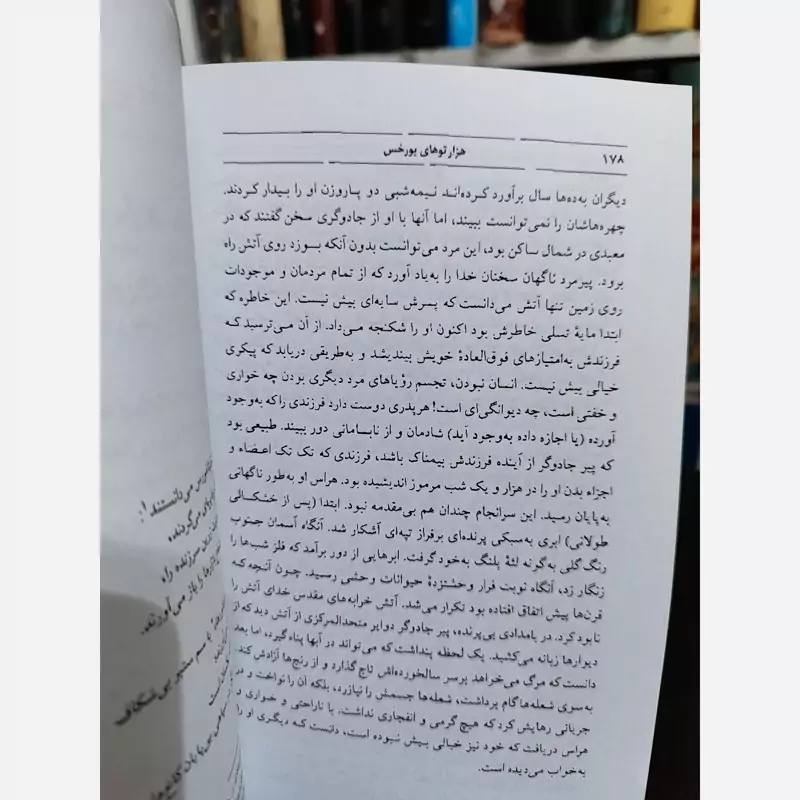 ۱۷۸
هزارتوهای بورخس
دیگران به‌ده‌ها سال برآورد کرده‌اند نیمه‌شبی دو پاروزن او را بیدار کردند.
چهره‌هاشان را نمی‌توانست ببیند، اما آنها با او از جادوگری سخن گفتند که در
معبدی در شمال ساکن بود، این مرد می‌توانست بدون آنکه بسوزد روی آتش راه
برود. پیرمرد ناگهان سخنان خدا را به‌یاد آورد که از تمام مردمان و موجودات
روی زمین تنها آتش می‌دانست که پسرش سایه‌ای بیش نیست. این خاطره که
ابتدا مایهٔ تسلی خاطرش بود اکنون او را شکنجه می‌داد. از آن می‌ترسید که
فرزندش به‌امتیازهای فوق‌العادهٔ خویش بیندیشد و به‌طریقی دریابد که پیکری
خیالی بیش نیست. انسان نبودن، تجسم رؤیاهای مرد دیگری بودن چه خواری
و خفتی است، چه دیوانگی‌ای است! هرپدری دوست دارد فرزندی را که به‌وجود
آورده (یا اجازه داده به‌وجود آید) شادمان و از نابسامانی دور ببیند. طبیعی بود
که پیر جادوگر از آینده فرزندش بیمناک باشد، فرزندی که تک تک اعضاء و
اجزاء بدن او را در هزار و یک شب مرموز اندیشیده بود. هراس او به‌طور ناگهانی
به‌پایان رسید. این سرانجام چندان هم بی‌مقدمه نبود. ابتدا (پس از خشکسالی
طولانی) ابری به‌سبکی پرنده‌ای برفراز تپه‌ای آشکار شد. آنگاه آسمان جنوب
رنگ گلی به‌گونه لثهٔ پلنگ به‌خود گرفت. ابرهایی از دور برآمد که فلز شب‌ها را
زنگار زد، آنگاه نوبت فرار وحشتزدهٔ حیوانات وحشی رسید. چون آنچه که
قرن‌ها پیش اتفاق افتاده بود تکرار می‌شد. آتش خرابه‌های مقدس خدای آتش را
نابود کرد. در بامدادی بی‌پرنده، پیر جادوگر دوایر متحدالمرکزی از آتش دید که از
دیوارها زبانه می‌کشید. یک لحظه پنداشت که می‌تواند در آبها پناه گیرد، اما بعد
دانست که مرگ می‌خواهد برسر سالخورده‌اش تاج گذارد و از رنج‌ها آزادش کند.
به‌سوی شعله‌ها گام برداشت، شعله‌ها جسمش را نیازرد، بلکه آن را نواخت و در
جریانی رهایش کرد که هیچ گرمی و انفجاری نداشت. با ناراحتی و خواری و
هراس دریافت که خود نیز خیالی بیش نبوده است، دانست که دیگری او را
به‌خواب می‌دیده است.
می‌دانستند!
می‌گردنده
سرزنده راه
را باز می‌آورند.